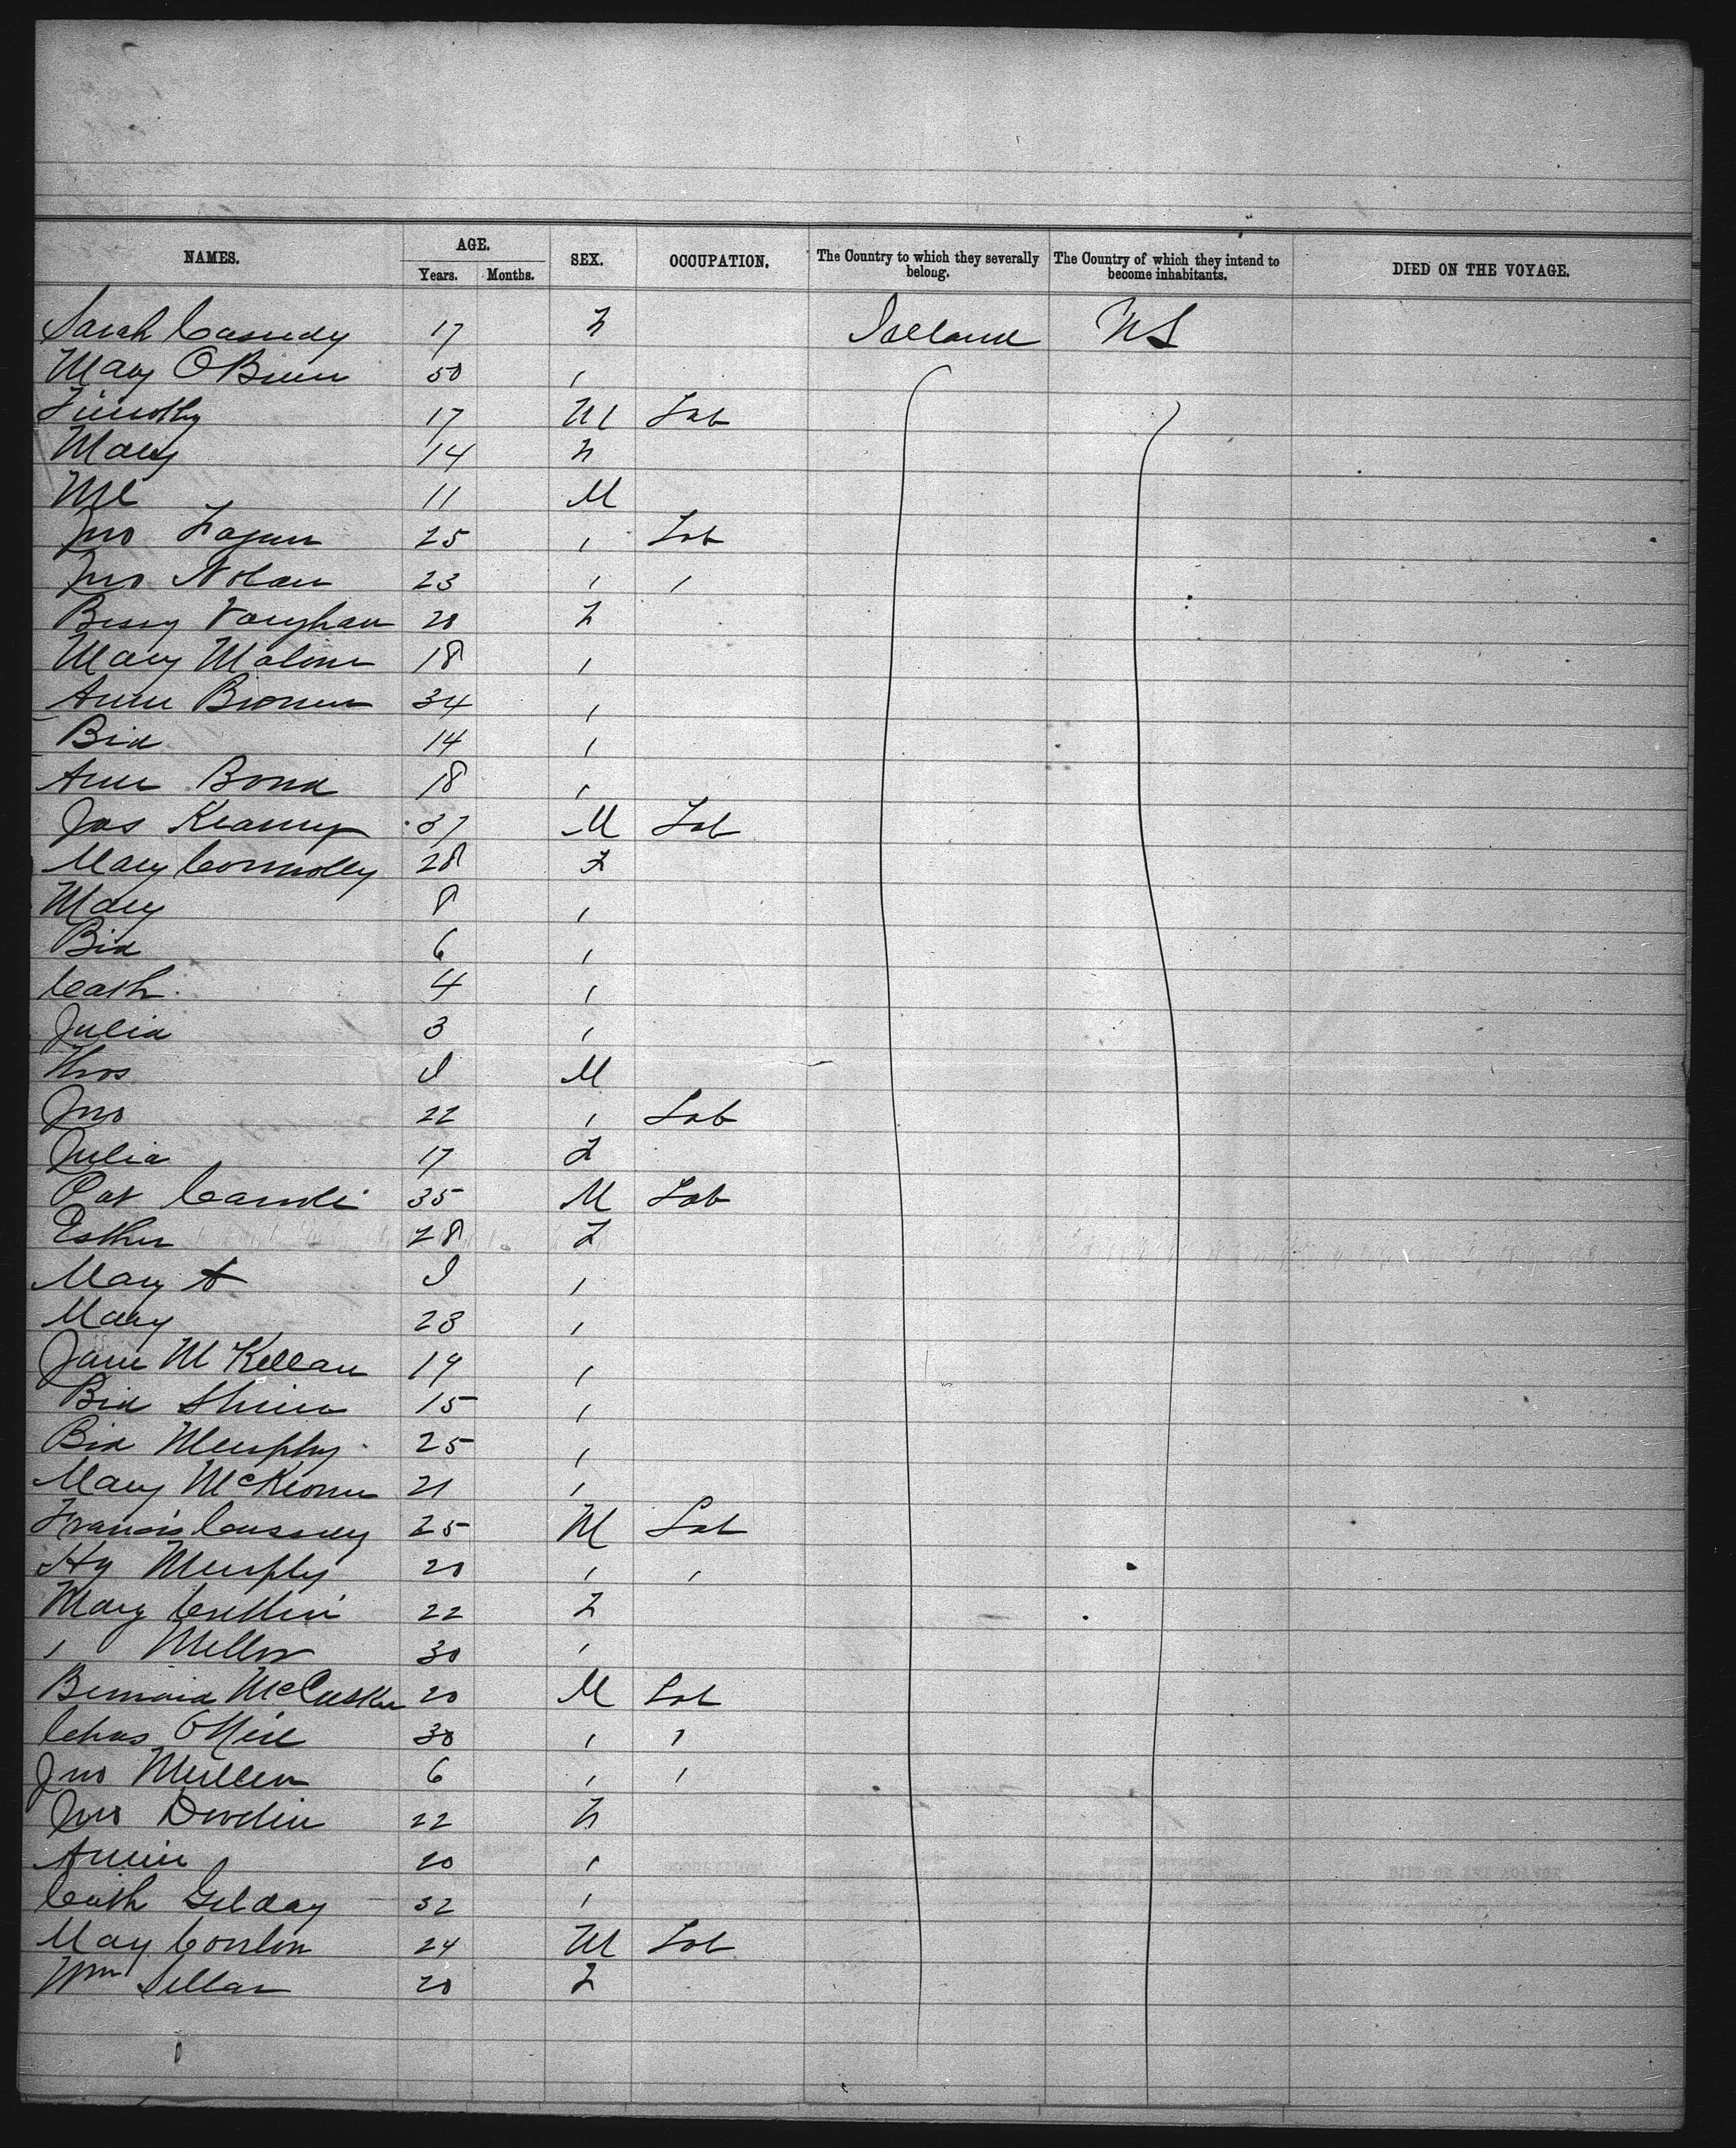 NAMES. AGE. Years. Months. SEX. OCCUPATION. The Country to which they severally belong. The Country of which they intend to become inhabitants. DIED ON THE VOYAGE.
Sarah Casudy 17 F Ireland US
Mary OBrien 50 "
Timothy 17 M Lab
Mary 14 F
Ml 11 M
Jno Fagan 25 " Lab
Jno Nolan 23 " "
Bessy Vaughan 20 F
Mary Malone 18 "
Anne 34 "
Bid 14 "
Ann Bond 18 "
Jas Kearney 37 M Lab
Mary Connolly 28 F
Mary 8 "
Bid 6 "
Cath 4 "
Julia 3 "
Thos M
Jno 22 " Lab
Julia 17 F
Pat 35 M Lab
Esther 28 F
Mary A "
Mary 23 "
Jane McKellan 19 "
Bid 15 "
Bid Murphy 25 "
Mary McKeone 21 "
Francis 25 M Lab
Hy Murphy 20 " "
Mary 22 F
" 30 "
Bernard McCusker 20 M Lab
Chas ONeil 30 " "
Jno Mullen 6 " "
Jno 22 F
Annie 20 "
Cath Gilday 32 "
May Conlon 24 M Lab
Wm 20 F